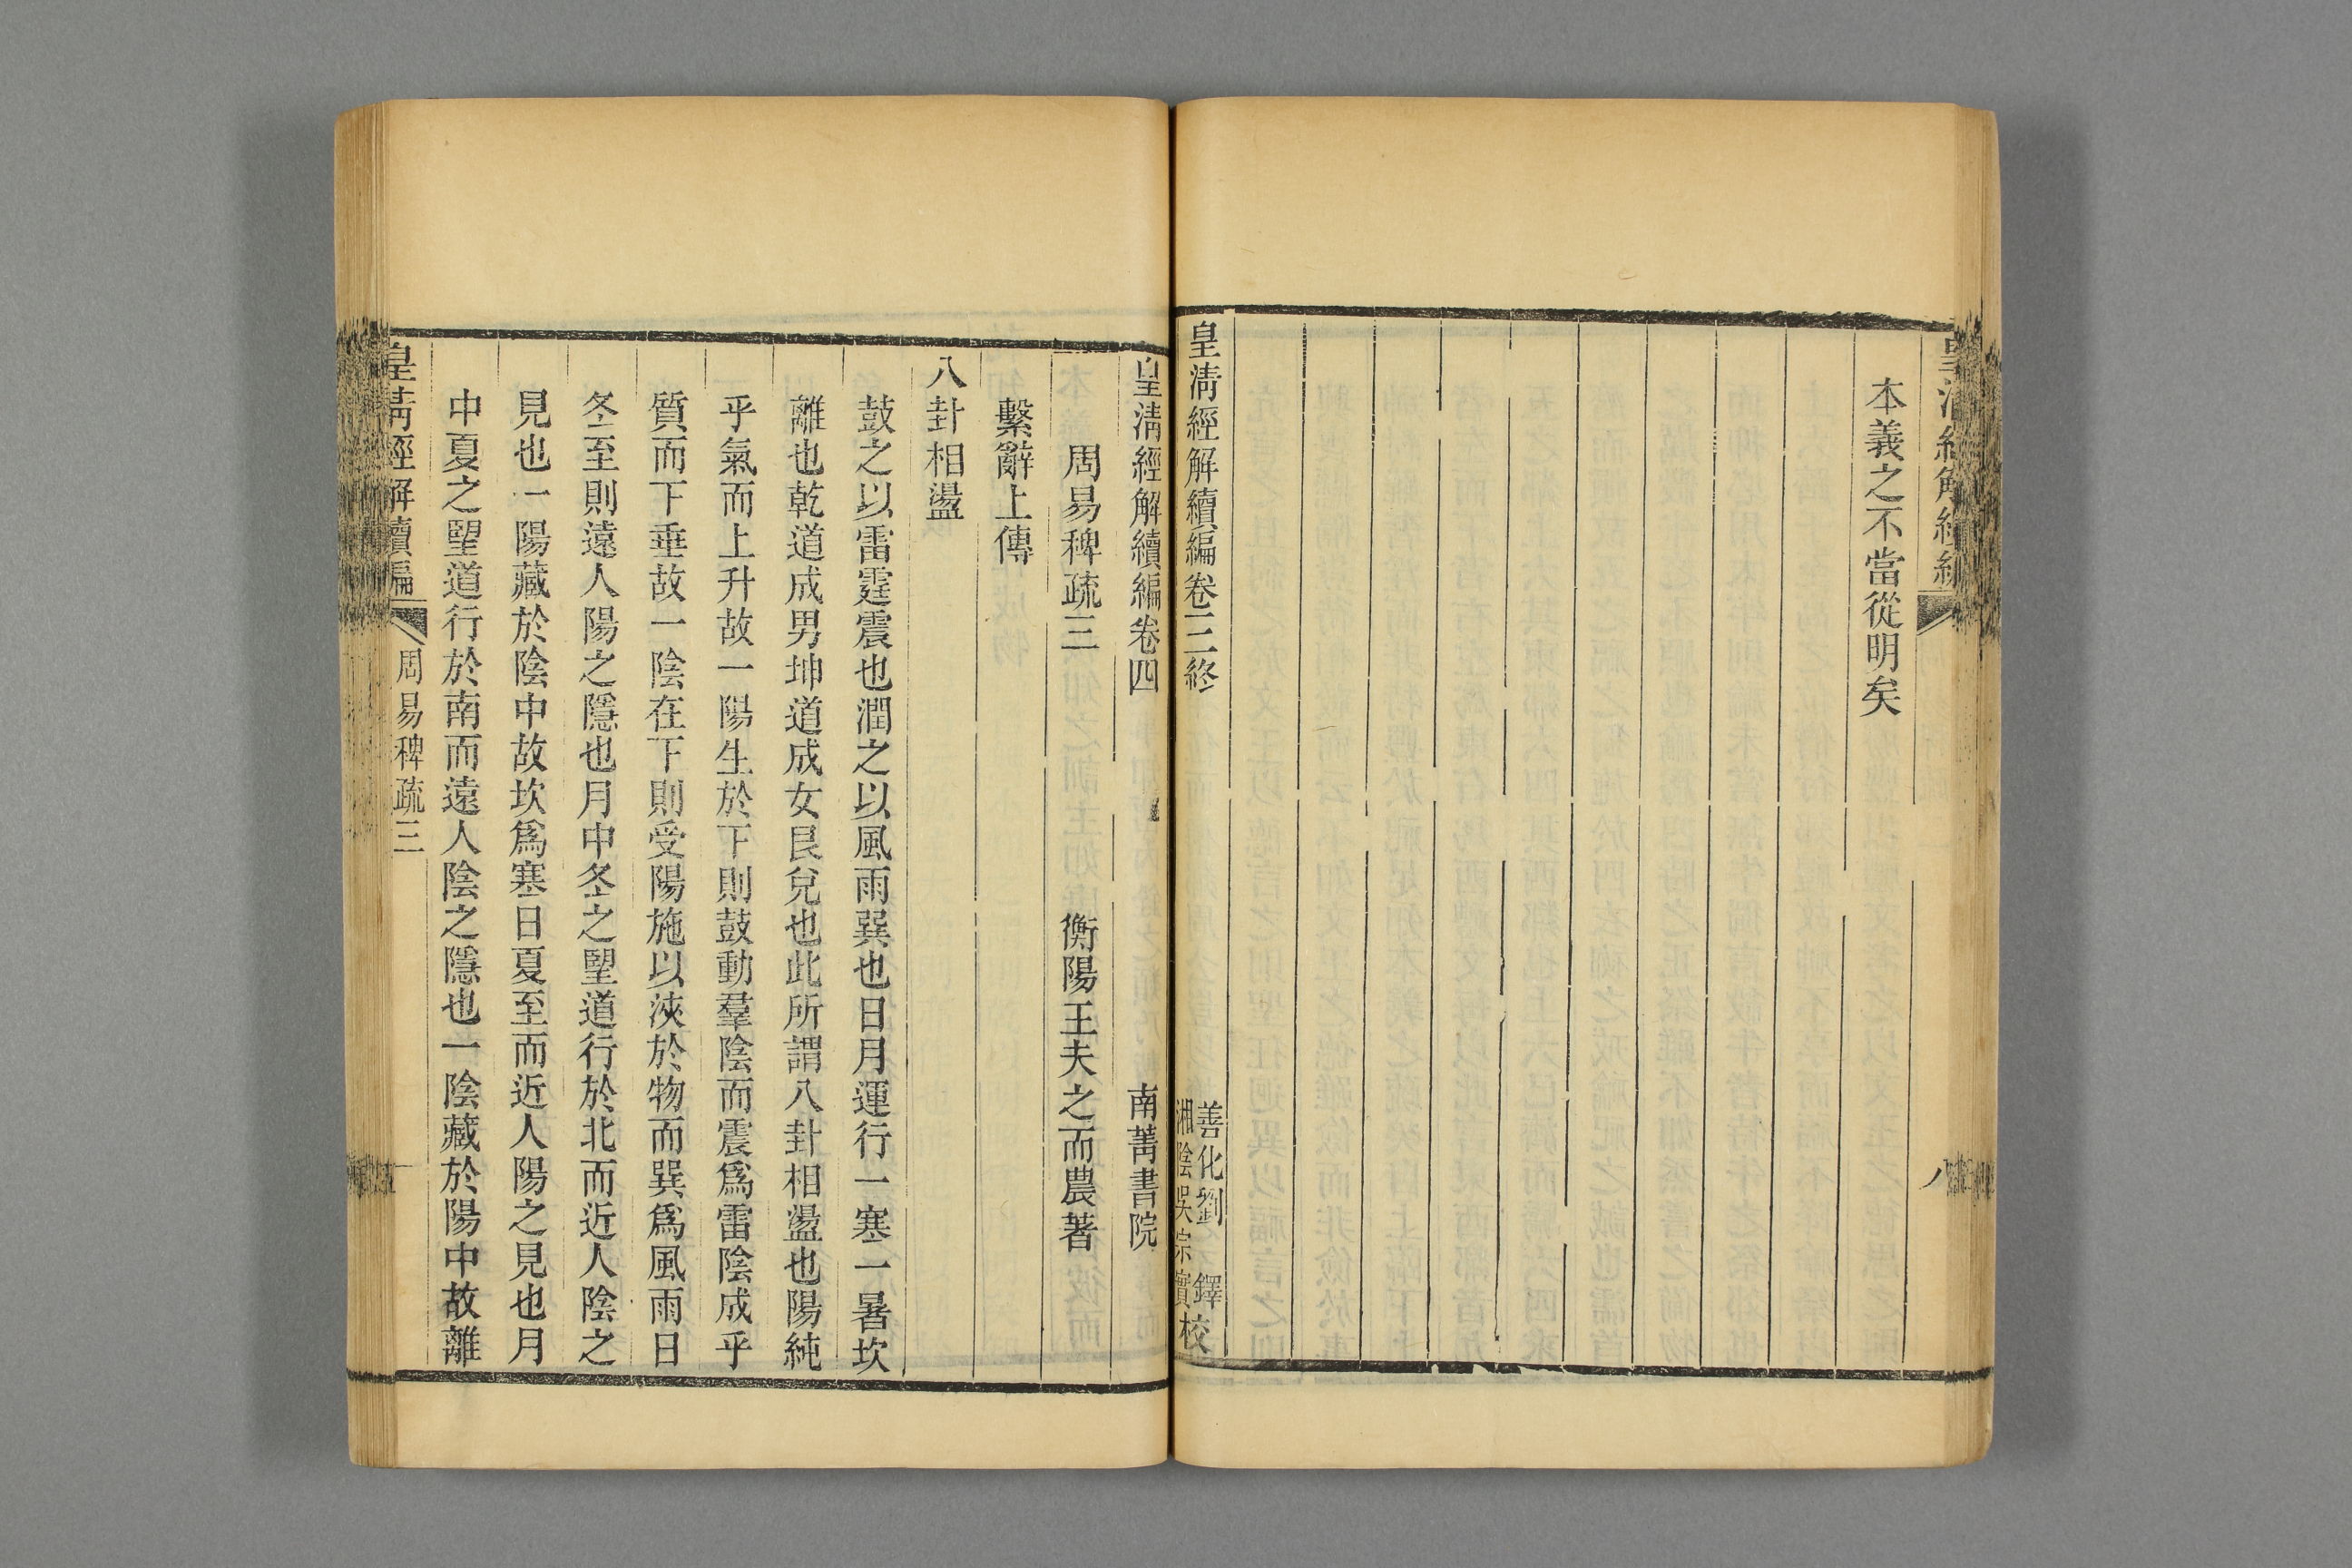 本義之不當從明矣
皇淸經解續編卷三終
善化劉鐸
湘陰吳宗實校
皇淸經解續編卷四
南菁書院
周易稗疏三
衡陽王夫之而農著
繫辭上傳
八卦相盪
鼓之以雷霆震也潤之以風雨巽也日月運行一寒一暑坎
離也乾道成男坤道成女艮兌也此所謂八卦相盪也陽純
乎氣而上升故一陽生於下則鼓動羣陰而震爲雷陰成乎
質而下垂故一陰在下則受陽施以浹於物而巽爲風雨日
冬至則遠人陽之隱也月中冬之望道行於北而近人陰之
見也一陽藏於陰中故坎爲寒日夏至而近人陽之見也月
中夏之望道行於南而遠人陰之隱也一陰藏於陽中故離
皇淸經解續編
周易稗疏三